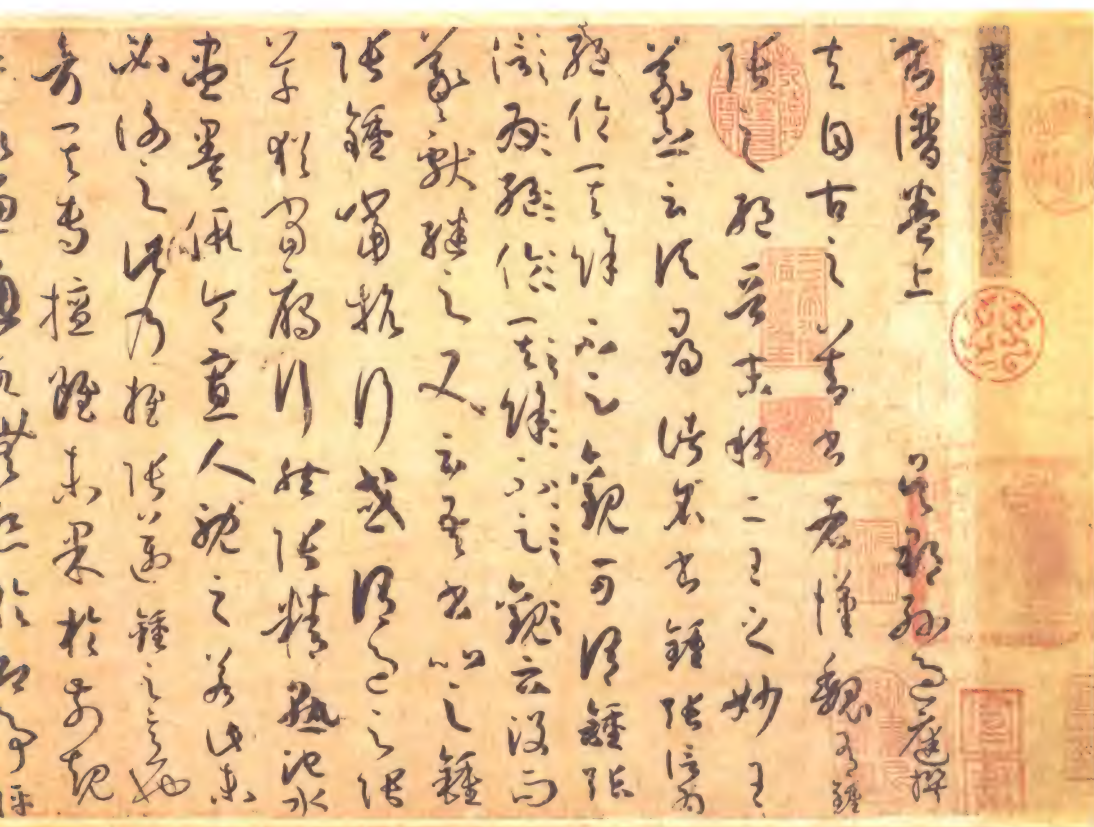 唐孫過庭書譜序
書譜卷上 吳郡孫過庭撰
夫自古之善書者漢魏有鍾
張之絕晉末稱二王之妙王
羲之云頃尋諸名書鍾張信為
絕倫其餘不足觀可謂鍾張
信為絕倫其餘不足觀云沒而
羲獻繼之又云吾書比之鍾
張鍾當抗行或謂過之張
草猶當鴈行然張精熟池水
盡墨假令寡人耽之若此未
必謝之此乃推張邁鍾之意也
考其專擅雖未果於前規